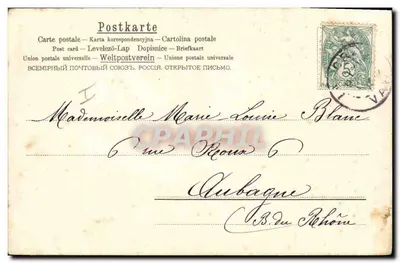 Postkarte
Carte postale — Karta korespondencyjna — Cartolina postale
Post card — Levelező-Lap — Dopisnice — Briefkaart
Union postale universelle — Weltpostverein — Unione postale universale
ВСЕМІРНЫЙ ПОЧТОВЫЙ СОЮЗЪ. РОССІЯ. ОТКРЫТОЕ ПИСЬМО.
I
Mademoiselle Marie Louise Blanc
6 rue Roux 6
Aubagne
B. du Rhône
CPARAMA